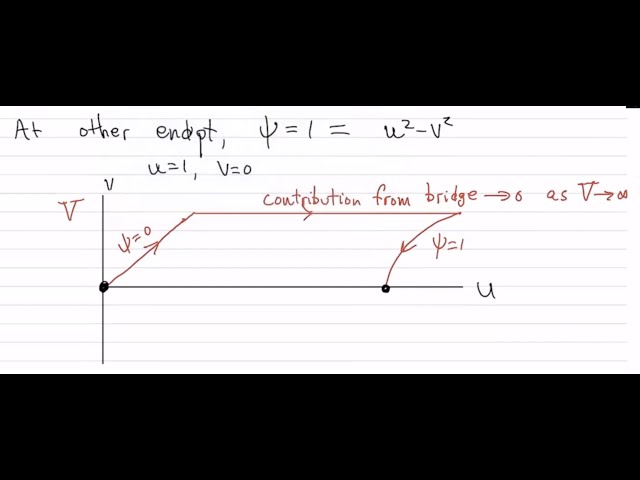 At other endpt, ψ=1 = u²-v²
u=1, v=0
v
V
contribution from bridge → 0 as V→∞
ψ=0
ψ=1
u